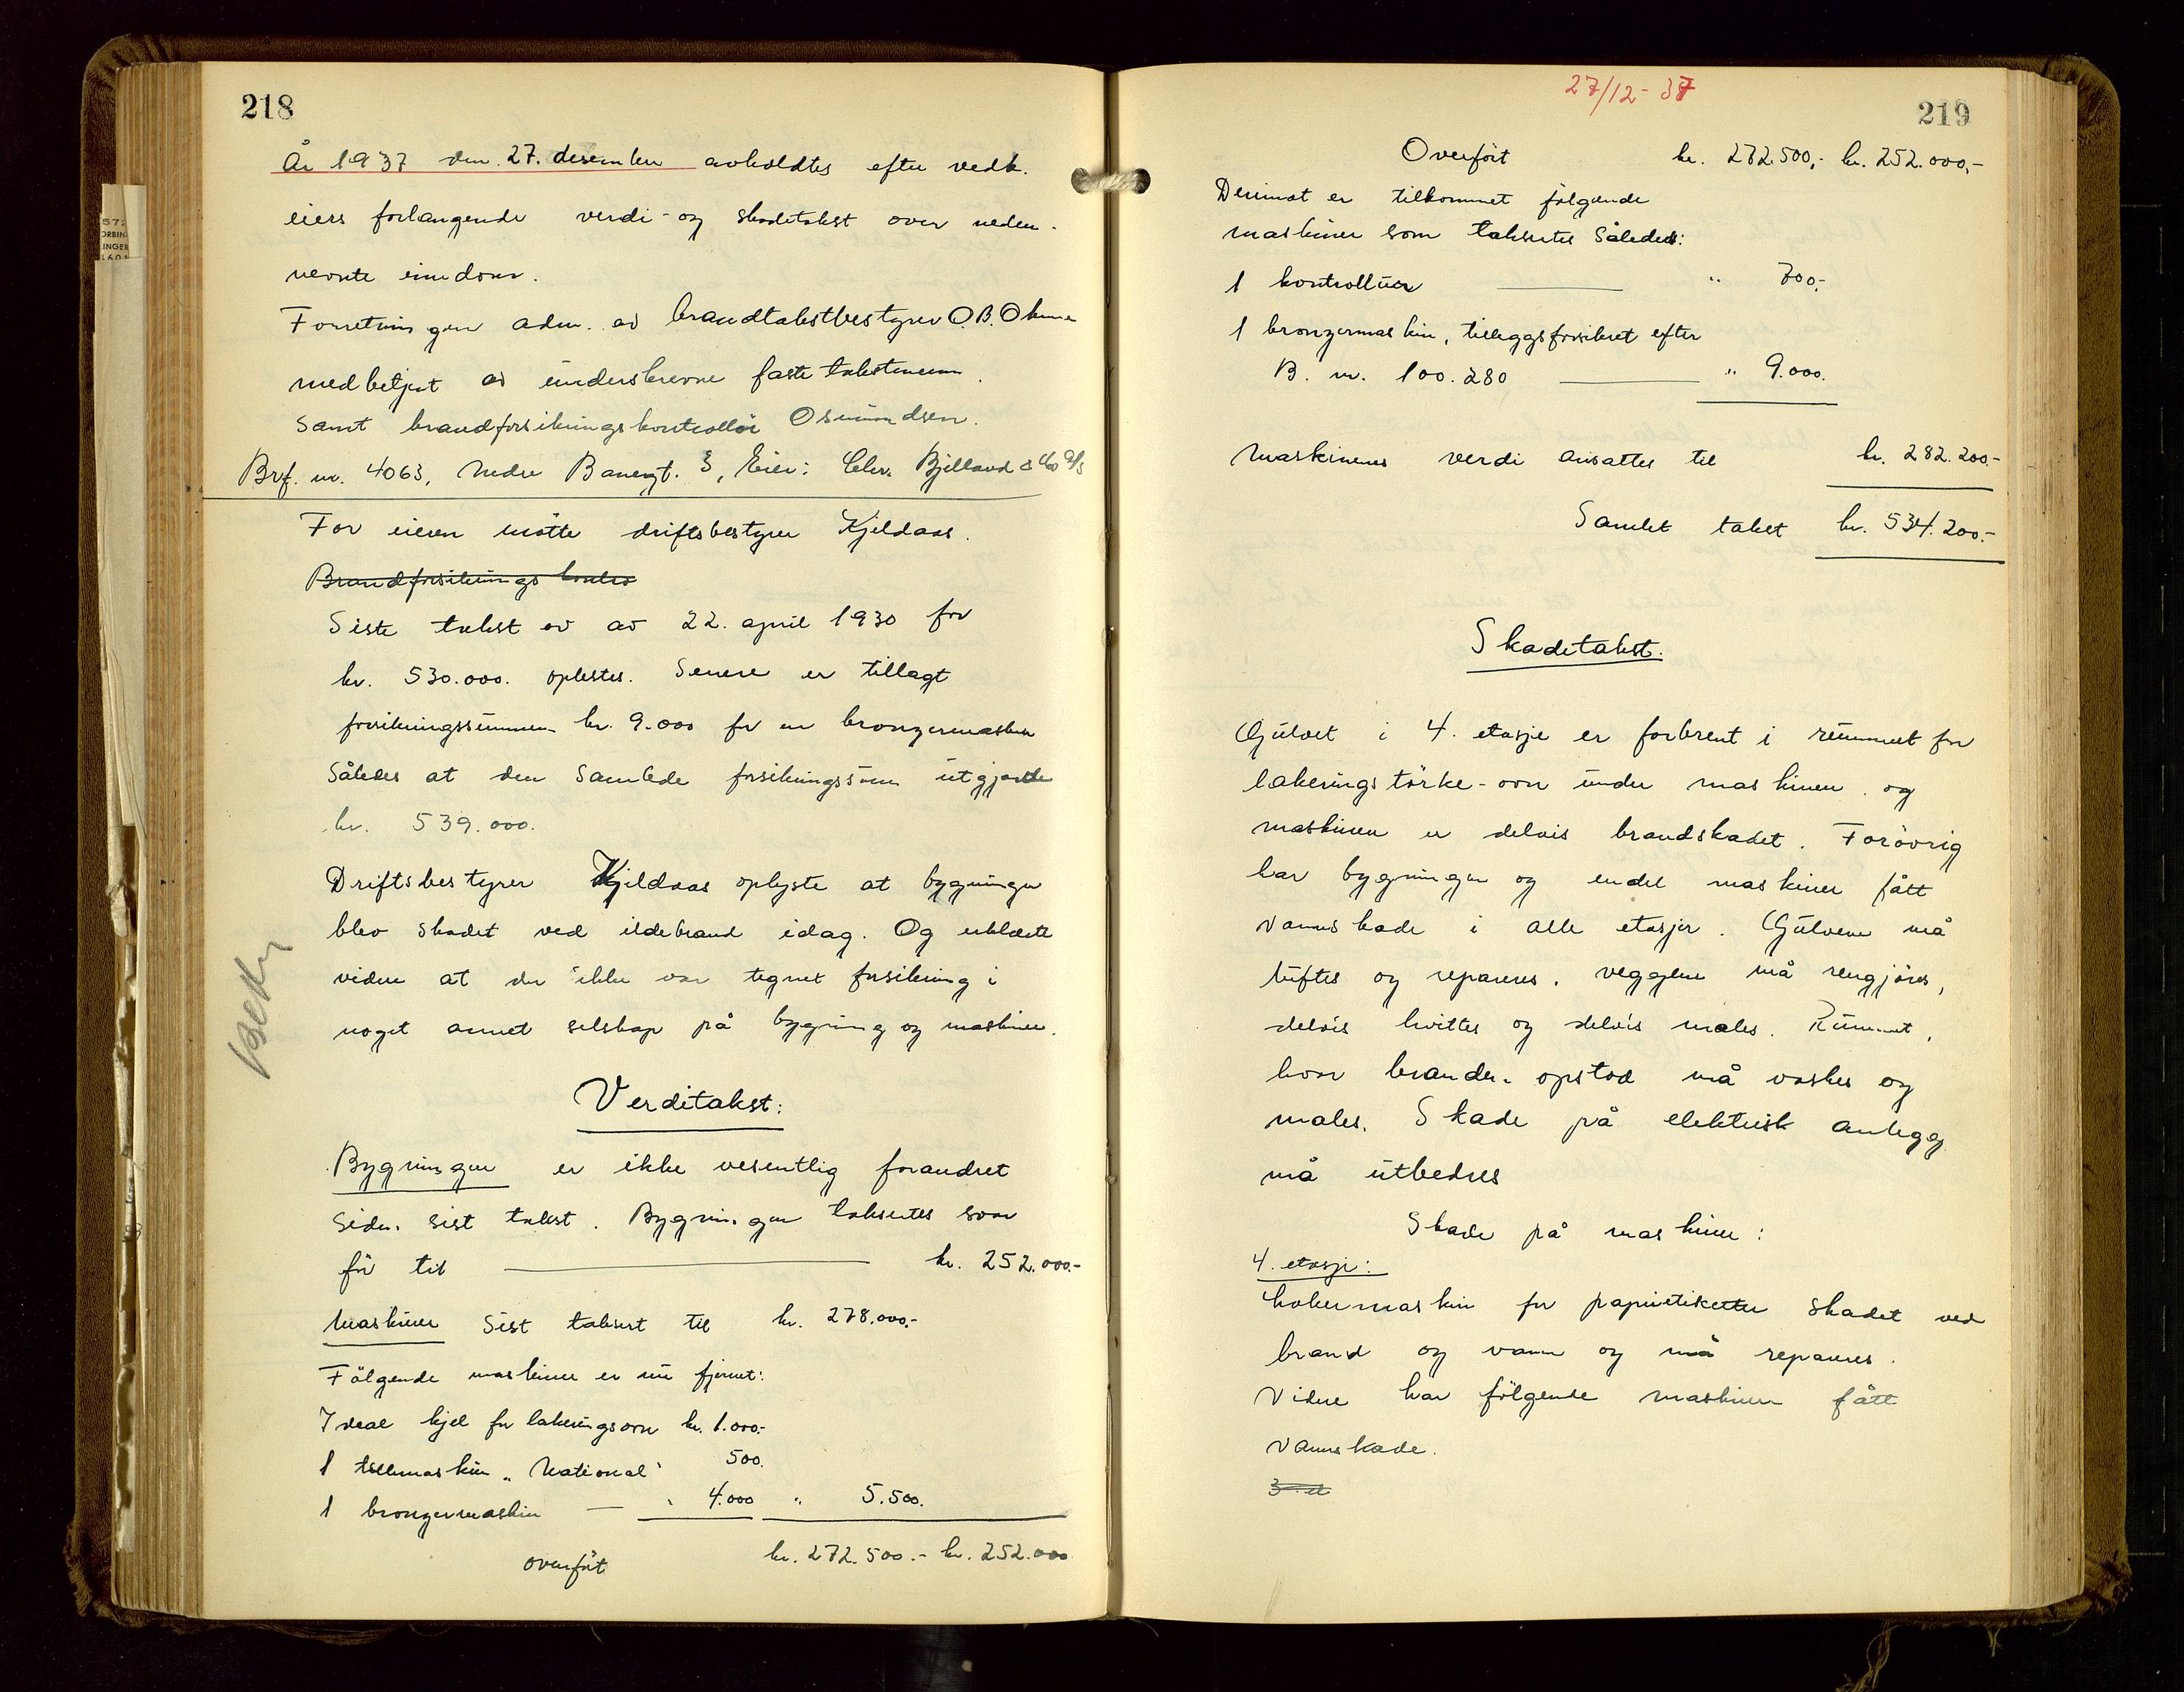 218
År 1937 den 27. desember avholdtes efter vedk.
eiers forlangende verdi- og skadetakst over neden-
nevnte eiendom.
Forretningen adm. av brandtakstbestyrer O.B.
medbetjent av underskrevne faste takstmenn
samt brandforsikringskontrollør Osmundsen.
Brf. nr. 4063, Nedre Banegt. 3, Eier: Chr. Bjelland & Co A/S
For eieren møtte driftsbestyrer Kjeldaas.
Brandforsikringskontro
Siste takst er av 22. april 1930 for
kr. 530.000. oplestes. Senere er tillagt
forsikringssummen kr. 9.000 for en bronzermaskin
således at den samlede forsikringssum utgjorde
kr. 539.000.
Driftsbestyrer Kjeldaas oplyste at bygningen
blev skadet ved ildebrand idag. Og erklærte
videre at der ikke var tegnet forsikring i
noget annet selskap på bygning og maskiner.
Verditakst:
Bygningen er ikke vesentlig forandret
siden sist takst. Bygningen taksertes som
før til kr. 252.000.-
Maskiner sist taksert til kr. 278.000.-
Følgende maskiner er nu fjernet:
Ideal kjel for lakeringsovn kr. 1.000.-
1 tellemaskin "National" 500.
1 bronzermaskin — " 4.000 " 5.500.
overført kr. 272.500.- kr. 252.000
27/12-37
219
Overført kr. 272.500,- kr. 252.000,-
Derimot er tilkommet følgende
maskiner som taksertes således:
1 kontrollur " 700,-
1 bronzermaskin, tilleggsforsikret efter
B. nr. 100.280 " 9.000.
Maskinenes verdi ansattes til kr. 282.200.-
Samlet takst kr. 534.200.-
Skadetakst.
Gulvet i 4. etasje er forbrent i rummet for
lakeringstørke-ovn under maskinen. og
maskinen er delvis brandskadet. Forøvrig
har bygningen og endel maskiner fått
vannskade i alle etasjer. Gulvene må
luftes og repareres. veggene må rengjøres,
delvis hvittes og delvis males. Rummet,
hvor branden opstod må vaskes og
males. Skade på elektrisk anlegg
må utbedres
Skade på maskiner:
4. etasje:
Lakermaskin for papiretiketter skadet ved
brand og vann og må repareres.
Videre har følgende maskiner fått
vannskade.
3. et